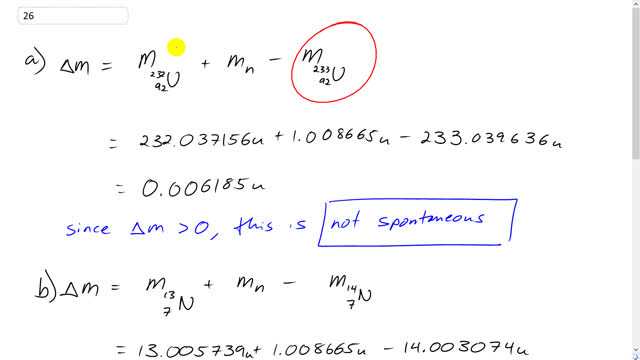 26
a) Δm = m ²³²₉₂U + mₙ − m ²³³₉₂U
= 232.037156u + 1.008665u − 233.039636u
= 0.006185u
since Δm > 0, this is not spontaneous
b) Δm = m ¹³₇N + mₙ − m ¹⁴₇N
= 13.005739u + 1.008665u − 14.003074u